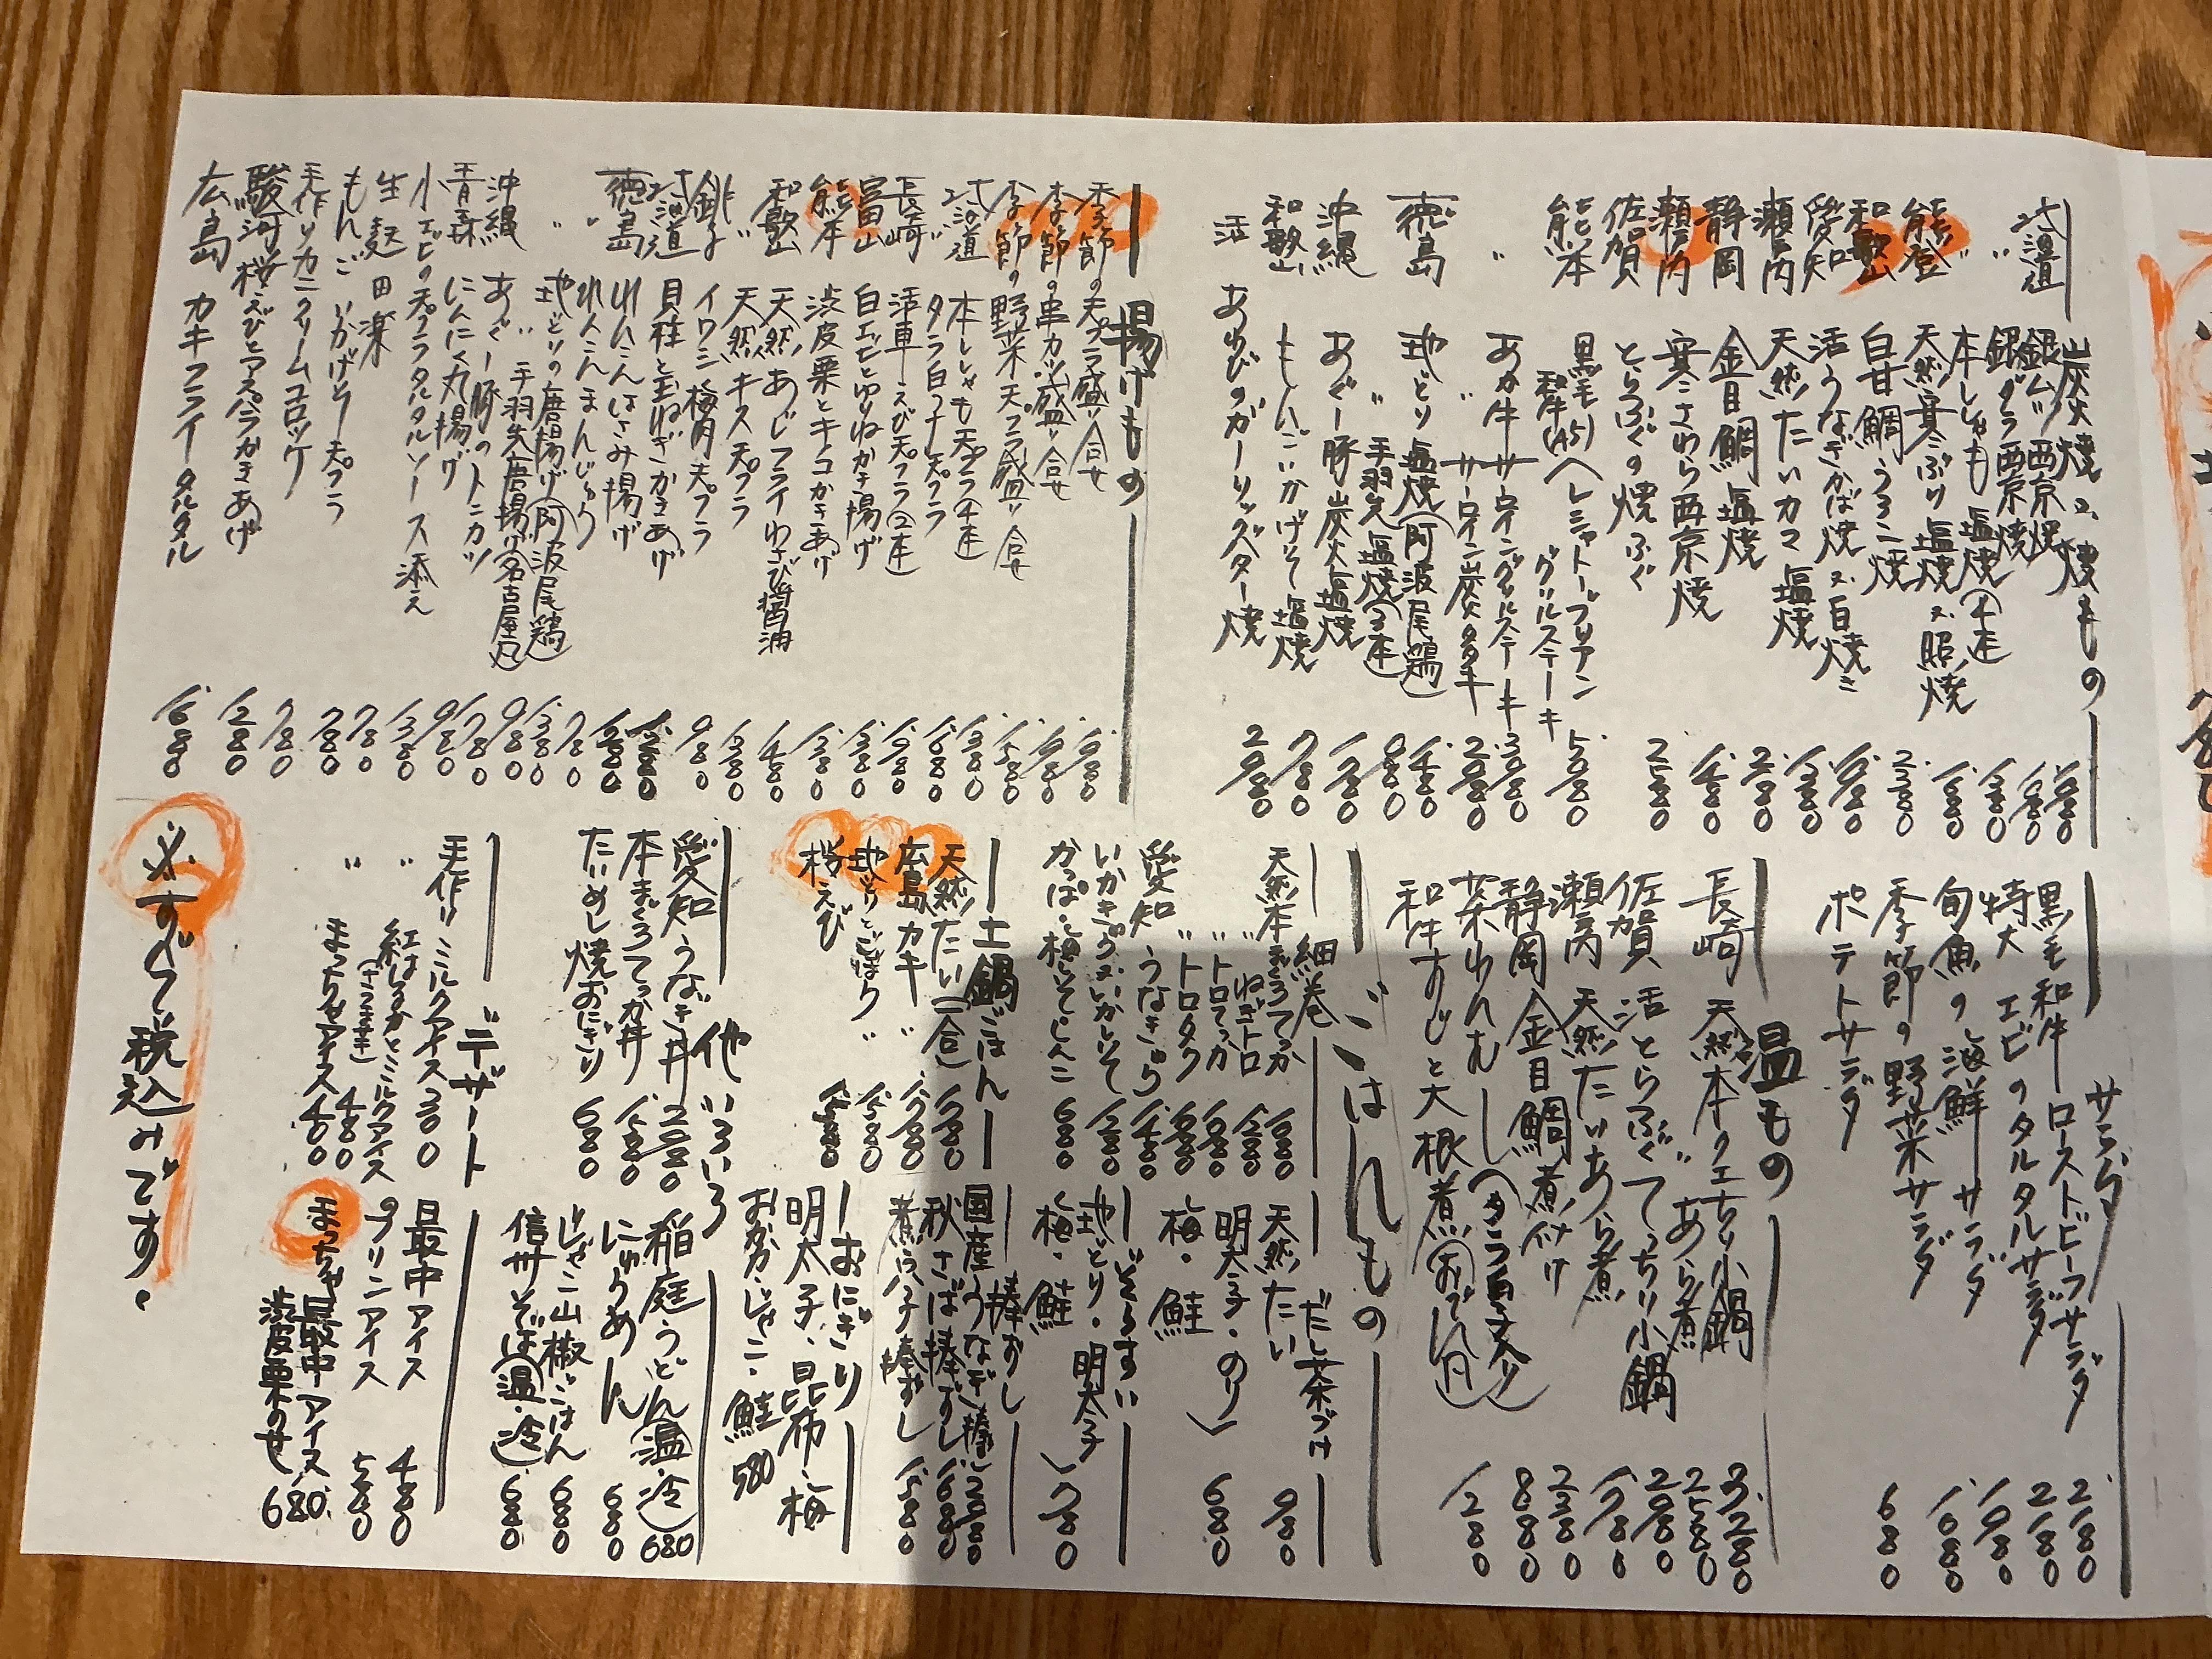 炭火焼又、焼もの
北海道 銀ムツ西京焼 1,980
〃 銀ダラ西京焼 1,980
〃 本ししゃも塩焼(4本) 1,380
能登 天然寒ぶり塩焼又、照焼 1,680
和歌山 白甘鯛うろこ焼 2,380
愛知 活うなぎかば焼又、白焼き
瀬戸内 天然たいカマ塩焼 1,380
静岡 金目鯛塩焼
瀬戸内 寒さわら西京焼 1,480
佐賀 とらふぐの焼ふぐ
熊本 黒毛和牛(A5)ヘレシャトーブリアン
グリルステーキ
〃 あか牛サーロイングリルステーキ
〃 サーロイン炭タタキ
徳島 地どり塩焼(阿波尾鶏) 1,480
〃 手羽先塩焼(3本) 980
沖縄 あぐー豚炭火塩焼
和歌山 もんごいかげそ塩焼 780
活 あわびのガーリックバター焼 2,980
揚げもの
季節の天プラ盛り合せ 1,980
季節の串カツ盛り合せ 1,980
季節の野菜天プラ盛り合せ 1,580
北海道 本ししゃも天プラ(4本) 1,380
〃 タラ白子天プラ 1,680
長崎 活車えび天プラ(2本) 1,980
富山 白エビとゆりねかき揚げ 1,380
熊本 渋皮栗とキノコかきあげ
和歌山 天然あじフライわさび醤油 1,480
〃 天然キス天プラ 1,380
銚子 イワシ梅肉天プラ 980
北海道 貝柱と玉ねぎかきあげ
徳島 れんこんはさみ揚げ
〃 れんこんまんじゅう 780
〃 地どりの唐揚げ(阿波尾鶏) 1,380
〃 手羽先唐揚げ(名古屋風) 980
沖縄 あぐー豚のトンカツ
青森 にんにく丸揚げ 980
小エビの天プラタルタルソース添え 1,380
生麩田楽 780
もんごいかげそ天プラ 780
手作りカニクリームコロッケ 780
駿河桜えびとアスパラかきあげ 1,280
広島 カキフライタルタル 1,680
サラダ
黒毛和牛ローストビーフサラダ 2,180
特大エビのタルタルサラダ 2,180
旬魚の海鮮サラダ 1,980
季節の野菜サラダ 1,080
ポテトサラダ 680
温もの
長崎 天然本クエちり小鍋 3,280
〃 あら煮 2,580
佐賀 活とらふぐてっちり小鍋 2,980
瀬戸内 天然たいあら煮
静岡 金目鯛煮付け 2,380
茶わんむし(タラ白子入り) 880
和牛すじと大根煮(おでん風) 1,280
ごはんもの
細巻
天然本まぐろてっか
〃 ねぎトロ 1,280
〃 トロてっか
〃 トロタク
愛知 うなきゅう 1,480
いかきゅう又、いかしそ 1,280
かっぱ・梅しそ・しんこ 680
だし茶づけ
天然たい 980
明太子・のり
梅・鮭
680
ぞうすい
地どり・明太子
梅・鮭
780
土鍋ごはん
天然たい(一合)
広島カキ 〃
地どりとごぼう 〃 1,580
桜えび 〃
棒ずし
国産うなぎ棒ずし 2,980
秋さば棒ずし 1,680
煮穴子棒ずし 1,580
おにぎり
明太子、昆布、梅
おかか、じゃこ、鮭 580
他いろいろ
愛知うなぎ丼 2,980
本まぐろてっか丼
たいめし焼おにぎり 680
稲庭うどん(温・冷) 680
にゅうめん 680
じゃこ山椒ごはん 680
信州そば(温・冷) 680
デザート
手作りミルクアイス 300
〃 紅はるかとミルクアイス 480
(さつま芋)
〃 まっちゃアイス 400
最中アイス 480
プリンアイス
まっちゃ最中アイス
渋皮栗のせ 680
※すべて税込みです。